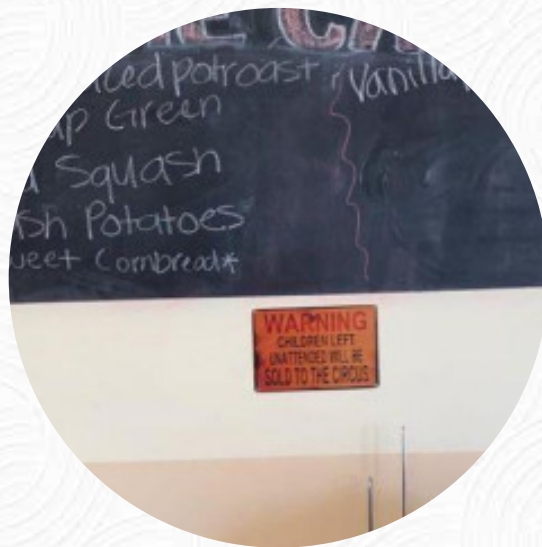 Potroast
Vanilla
Green
Squash
Potatoes
Cornbread*
WARNING
CHILDREN LEFT
UNATTENDED WILL BE
SOLD TO THE CIRCUS